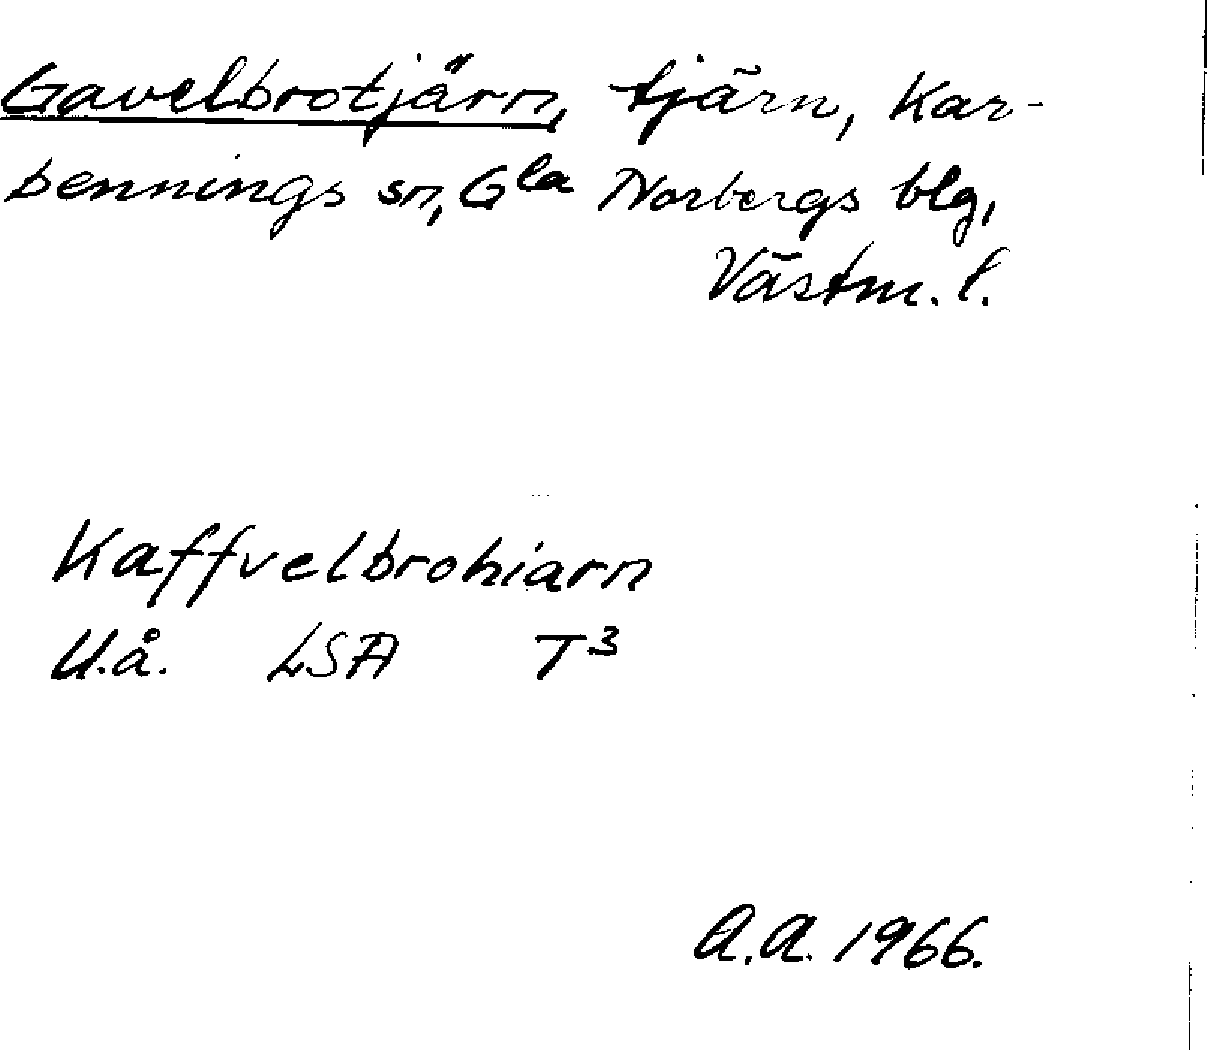 Gavelbrotjärn, tjärn, Kar-
bennings sn, Gla Norbergs blg,
Västm. l.
Kaffvelbrohiarn
U.å. LSA T3
A.A. 1966.